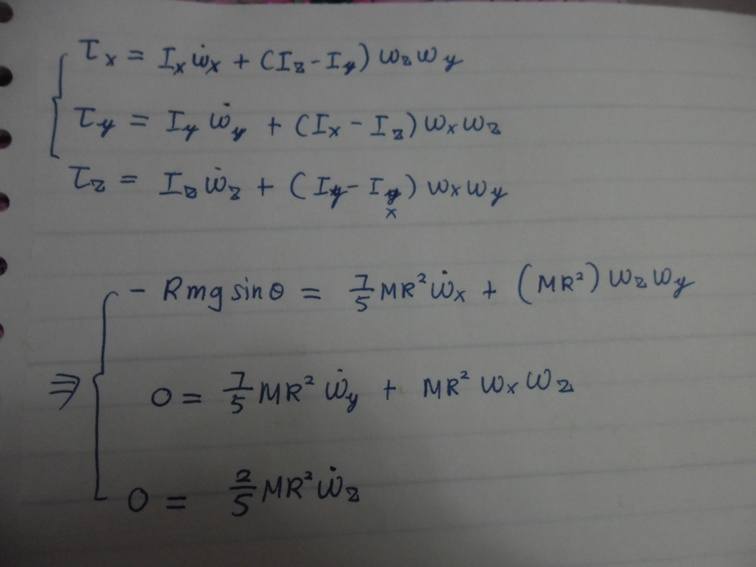 τx = Ixω̇x + (Iz-Iy) ωzωy
τy = Iy ω̇y + (Ix - Iz) ωxωz
τz = Izω̇z + (Iy - Ix) ωxωy
- Rmg sinθ = 7/5 MR² ω̇x + (MR²) ωzωy
⇒ 0 = 7/5 MR² ω̇y + MR² ωxωz
0 = 2/5 MR² ω̇z